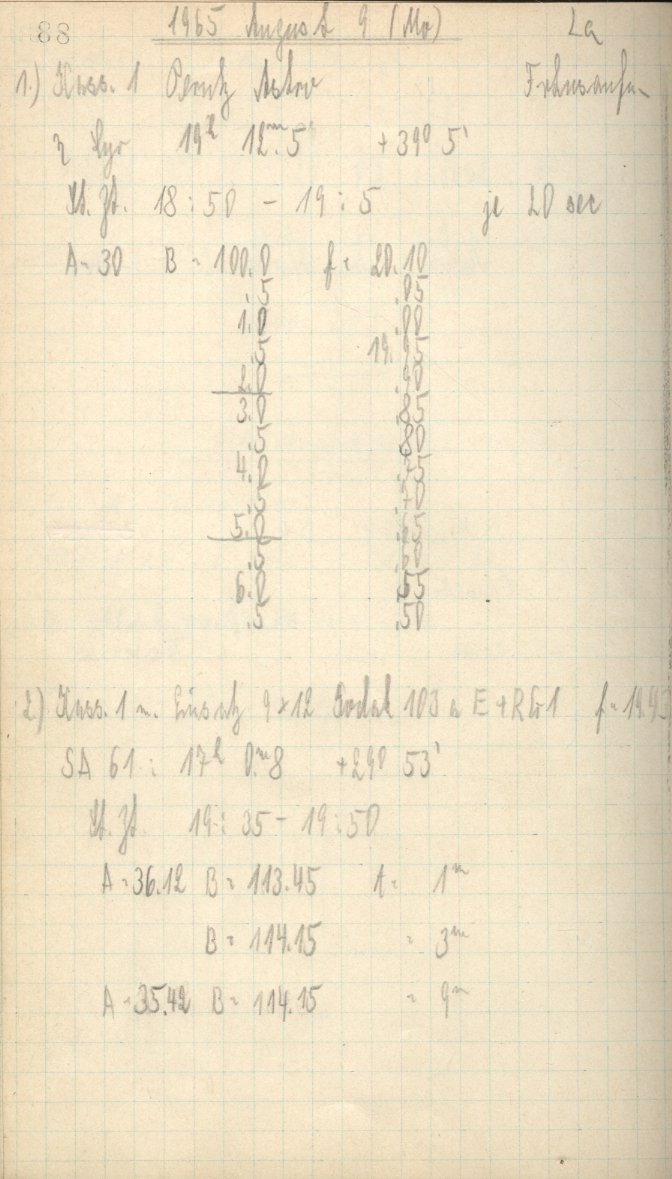 88 1965 August 9 (Mo) La
1.) Kass. 1 Perutz Astro
η Lyr 19h 12m.5 +39° 5'
St. Zt. 18:50 - 19:5 je 20 sec
A = 30 B = 100.0 f = 20.10
.5 .05
1.0 .00
.5 19.95
2.0 .90
3.0 .85
.5 .80
4.0 .75
.5 .70
5.0 .65
.5 .60
6.0 .55
.5 .50
2.) Kass. 1 m. Einsatz 9x12 Kodak 103 a E + RG1 f = 19.93
SA 61: 17h 0m.8 +29° 53'
St. Zt. 19:35 - 19:50
A = 36.12 B = 113.45 t = 1m
B = 114.15 = 3m
A = 35.42 B = 114.15 = 9m